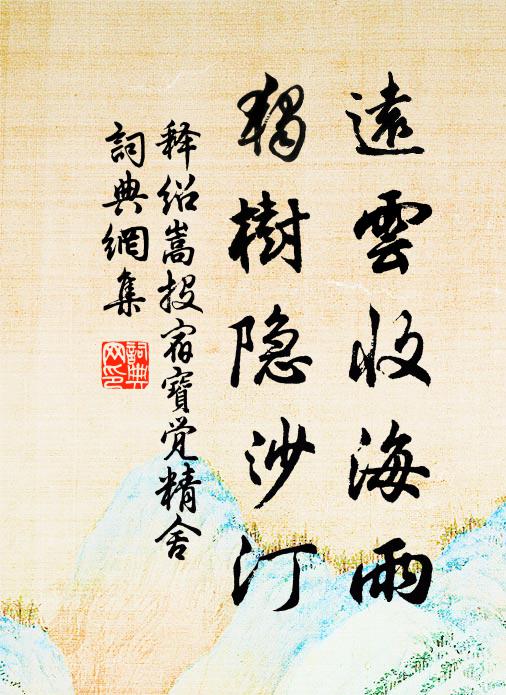 遠雲收海雨
獨樹隐沙汀
释绍嵩投宿寶觉精舍
詞典網集
詞典网印